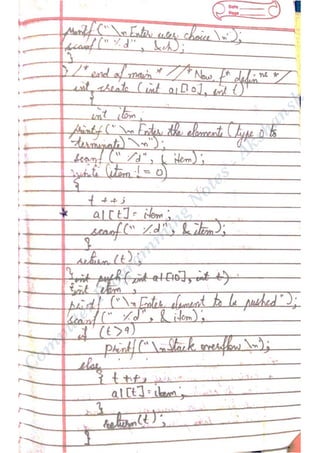 Date
Page
printf("\n Enter user choice \n");
scanf("%d", &ch);
}
} /* end of main */ /* Now fⁿ defin ns */
int create (int a1[10], int t)
{
int item,
printf("\n Enter the elements (type 0 to
terminate) \n");
scanf("%d", & item);
while (item != 0)
{
t ++;
a1[t] = item;
scanf("%d", & item);
}
return(t);
} int push (int a1[10], int t)
{ int item,
printf("\n Enter element to be pushed");
scanf("%d", & item);
if (t>9)
printf("\n Stack overflow \n");
else
{ t ++,
a1[t]=item,
}
return(t);
}